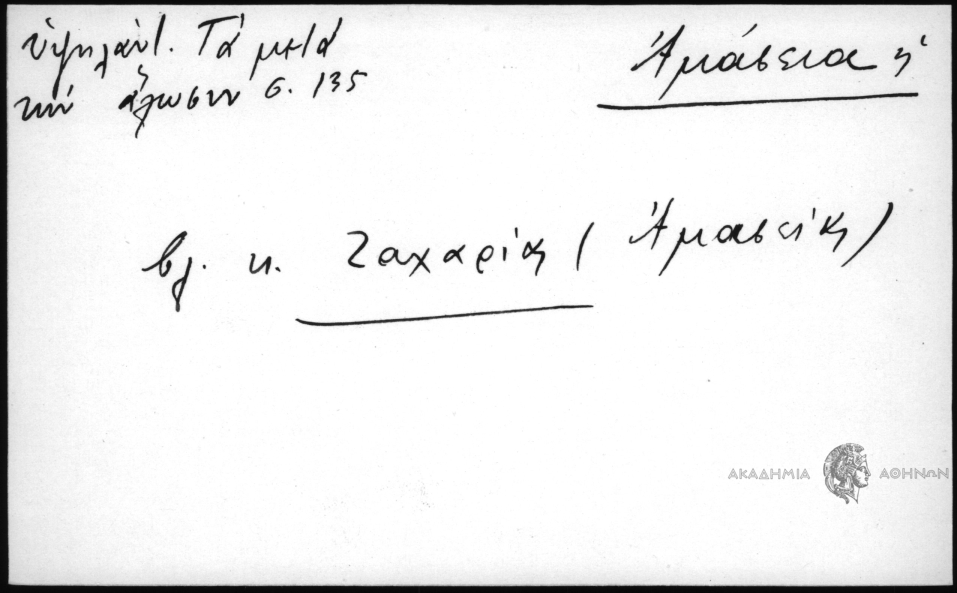 Ὑψηλάντ. Τά μετά
τήν ἅλωσιν σ. 135
Ἀμάσεια ἡ
βλ. κ. Ζαχαρίας (Ἀμασείας)
ΑΚΑΔΗΜΙΑ ΑΘΗΝΩΝ